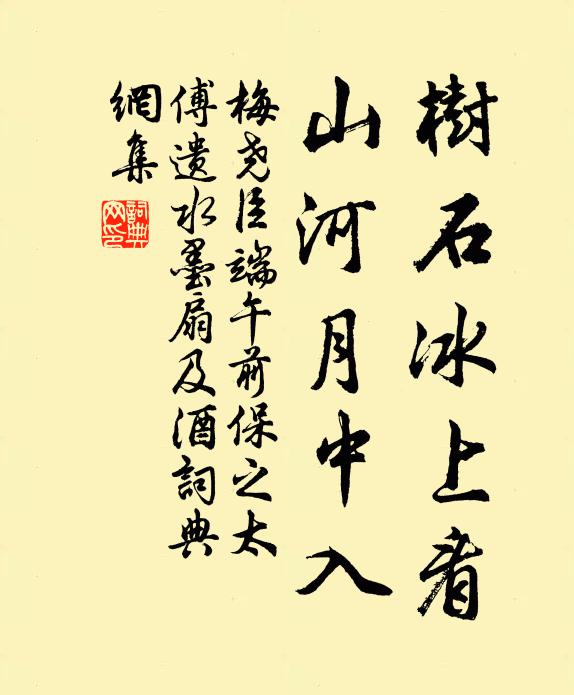 樹石冰上看
山河月中入
梅尧臣端午前保之太
傅遗水墨扇及酒詞典
網集
詞典
网印